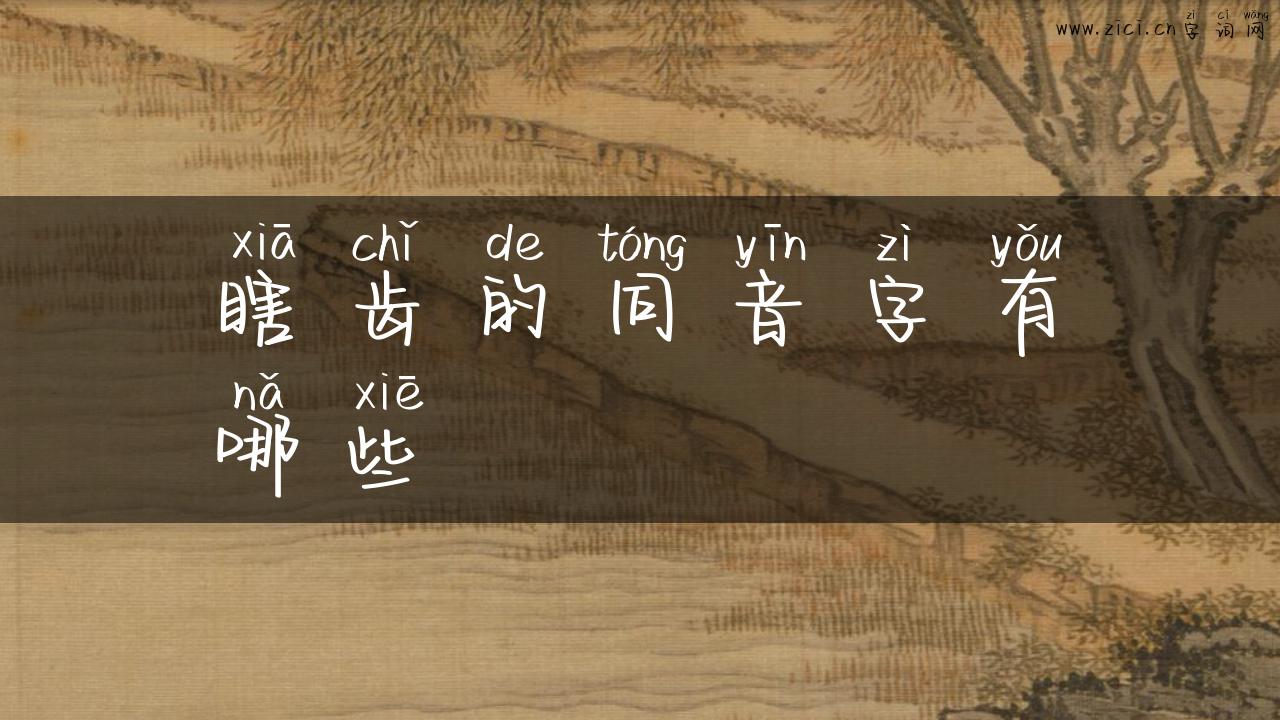 zì cí wǎng
www.zici.cn字词网
xiā chǐ de tóng yīn zì yǒu
瞎齿的同音字有
nǎ xiē
哪些